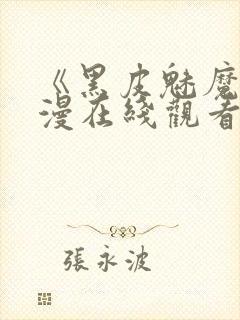 《黑皮魅魔
漫在綫觀看
張永波